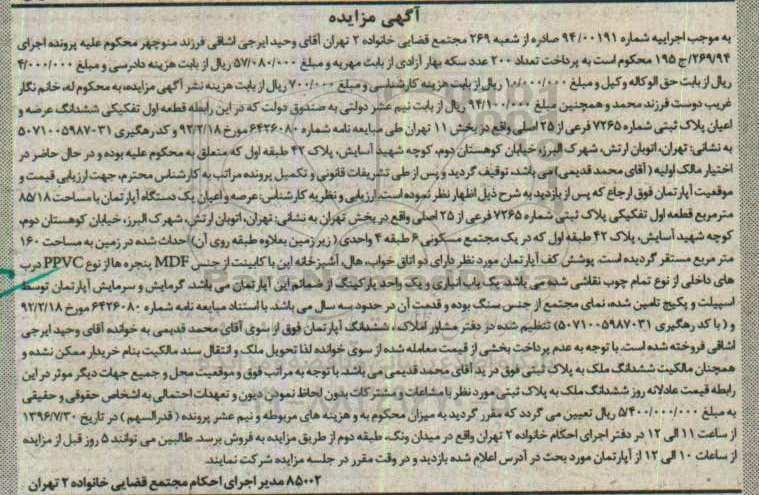 آگهی مزایده
به موجب اجراییه شماره ۹۴/۰۰۱۹۱ صادره از شعبه ۲۶۹ مجتمع قضایی خانواده ۲ تهران آقای وحید ایرجی اشاقی فرزند منوچهر محکوم علیه پرونده اجرای
۲۶۹/۹۴/ج ۱۹۵ محکوم است به پرداخت تعداد ۲۰۰ عدد سکه بهار آزادی از بابت مهریه و مبلغ ۵۷/۰۸۰/۰۰۰ ریال از بابت هزینه دادرسی و مبلغ ۴/۰۰۰/۰۰۰
ریال از بابت حق الوکاله وکیل و مبلغ ۱۰/۰۰۰/۰۰۰ ریال از بابت هزینه کارشناسی و مبلغ ۷۰۰/۰۰۰ ریال از بابت هزینه نشر آگهی مزایده، به محکوم له، خانم نگار
غریب دوست فرزند محمد و همچنین مبلغ ۹۴/۱۰۰/۰۰۰ ریال از بابت نیم عشر دولتی به صندوق دولت که در این رابطه قطعه اول تفکیکی ششدانگ عرصه و
اعیان پلاک ثبتی شماره ۷۲۶۵ فرعی از ۲۵ اصلی واقع در بخش ۱۱ تهران طی مبایعه نامه شماره ۶۴۲۶۰۸۰ مورخ ۹۲/۲/۱۸ و کد رهگیری ۵۰۷۱۰۰۵۹۸۷۰۳۱
به نشانی: تهران، اتوبان ارتش، شهرک البرز، خیابان کوهستان دوم، کوچه شهید آسایش، پلاک ۴۲ طبقه اول که متعلق به محکوم علیه بوده و در حال حاضر در
اختیار مالک اولیه (آقای محمد قدیمی) می باشد، توقیف گردید و پس از طی تشریفات قانونی و تکمیل پرونده مراتب به کارشناس محترم، جهت ارزیابی قیمت و
موقعیت آپارتمان فوق ارجاع که پس از بازدید به شرح ذیل اظهار نظر نموده است. ارزیابی و نظریه کارشناس: عرصه و اعیان یک دستگاه آپارتمان با مساحت ۸۵/۱۸
مترمربع قطعه اول تفکیکی پلاک ثبتی شماره ۷۲۶۵ فرعی از ۲۵ اصلی واقع در بخش تهران به نشانی: تهران، اتوبان ارتش، شهرک البرز، خیابان کوهستان دوم،
کوچه شهید آسایش، پلاک ۴۲ طبقه اول که در یک مجتمع مسکونی ۶ طبقه ۴ واحدی (زیر زمین بعلاوه طبقه روی آن) احداث شده در زمین به مساحت ۱۶۰
متر مربع مستقر گردیده است. پوشش کف آپارتمان مورد نظر دارای دو اتاق خواب، هال، آشپزخانه این با کابینت از جنس MDF پنجره ها از نوع PPVC درب
های داخلی از نوع تمام چوب نقاشی شده می باشد. یک باب انباری و یک واحد پارکینگ از ضمائم این آپارتمان می باشد. گرمایش و سرمایش آپارتمان توسط
اسپیلت و پکیج تامین شده، نمای مجتمع از جنس سنگ بوده و قدمت آن در حدود سه سال می باشد. با استناد مبایعه نامه شماره ۶۴۲۶۰۸۰ مورخ ۹۲/۲/۱۸
و (با کد رهگیری ۵۰۷۱۰۰۵۹۸۷۰۳۱) تنظیم شده در دفتر مشاور املاک، ششدانگ آپارتمان فوق از سوی آقای محمد قدیمی به خوانده آقای وحید ایرجی
اشاقی فروخته شده است. با توجه به عدم پرداخت بخشی از قیمت معامله شده از سوی خوانده لذا تحویل ملک و انتقال سند مالکیت بنام خریدار ممکن نشده و
همچنان مالکیت ششدانگ ملک به پلاک ثبتی فوق در ید آقای محمد قدیمی می باشد. با توجه به مراتب فوق و موقعیت محل و جمیع جهات دیگر موثر در این
رابطه قیمت عادلانه روز ششدانگ ملک به پلاک ثبتی مورد نظر با مشاعات و مشترکات بدون لحاظ نمودن دیون و تعهدات احتمالی به اشخاص حقوقی و حقیقی
به مبلغ ۵/۴۰۰/۰۰۰/۰۰۰ ریال تعیین می گردد که مقرر گردید به میزان محکوم به و هزینه های مربوطه و نیم عشر پرونده (قدرالسهم) در تاریخ ۱۳۹۶/۷/۳۰
از ساعت ۱۱ الی ۱۲ در دفتر اجرای احکام خانواده ۲ تهران واقع در میدان ونک، طبقه دوم از طریق مزایده به فروش برسد. طالبین می توانند ۵ روز قبل از مزایده
از ساعات ۱۰ الی ۱۲ از آپارتمان مورد بحث در آدرس اعلام شده بازدید و در وقت مقرر در جلسه مزایده شرکت نمایند.
۸۵۰۰۲ مدیر اجرای احکام مجتمع قضایی خانواده ۲ تهران